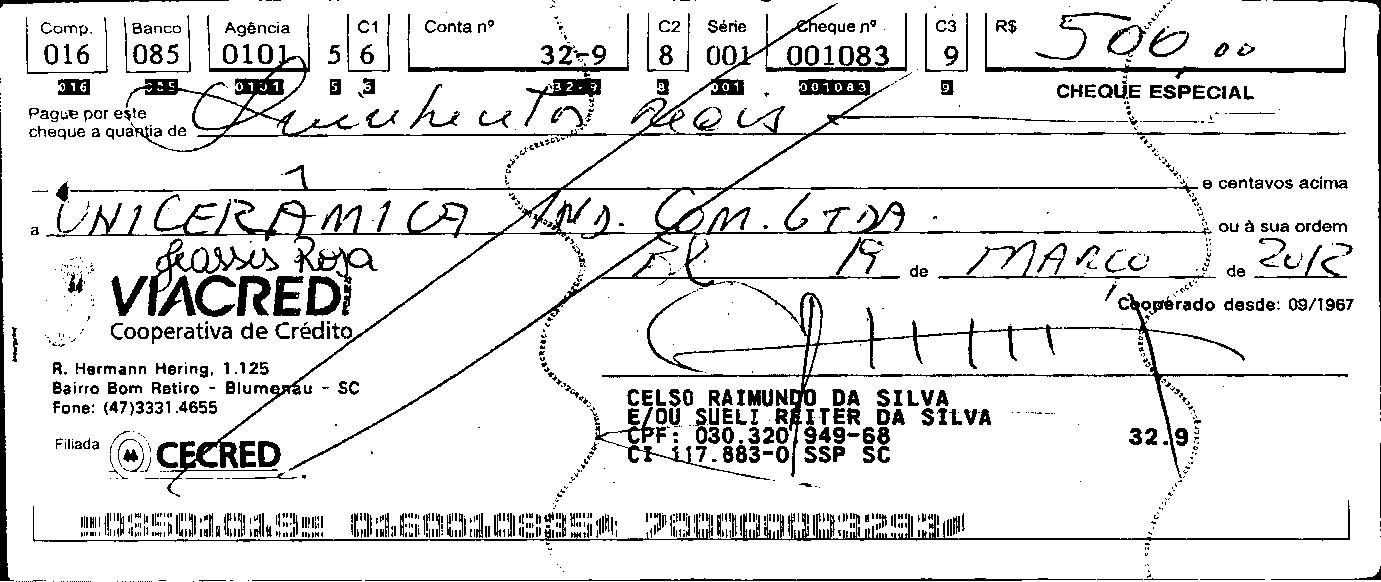 Comp. Banco Agência C1 Conta nº C2 Série Cheque nº C3 R$ 500,00
016 085 0101 5 6 32-9 8 001 001083 9
016 085 0101 5 6 32-9 8 001 001083 9
CHEQUE ESPECIAL
Pague por este
cheque a quantia de Quinhentos reais
e centavos acima
a UNICERÂMICA IND. COM. LTDA. ou à sua ordem
19 de MARÇO de 2012
VIACRED
Cooperativa de Crédito
Cooperado desde: 09/1967
R. Hermann Hering, 1.125
Bairro Bom Retiro - Blumenau - SC
Fone: (47)3331.4655
Filiada CECRED
CELSO RAIMUNDO DA SILVA
E/OU SUELI REITER DA SILVA
CPF: 030.320.949-68
CI 117.883-0 SSP SC
32.9